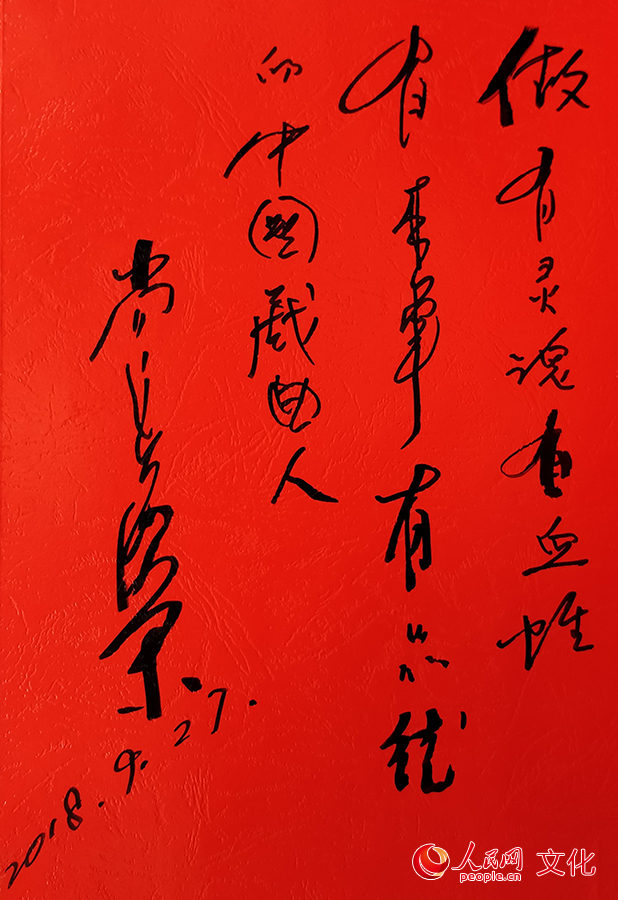 做有灵魂有血性
有本事有品德
的中国戏曲人
尚长荣
2018.9.27.
人民网 文化
people.cn